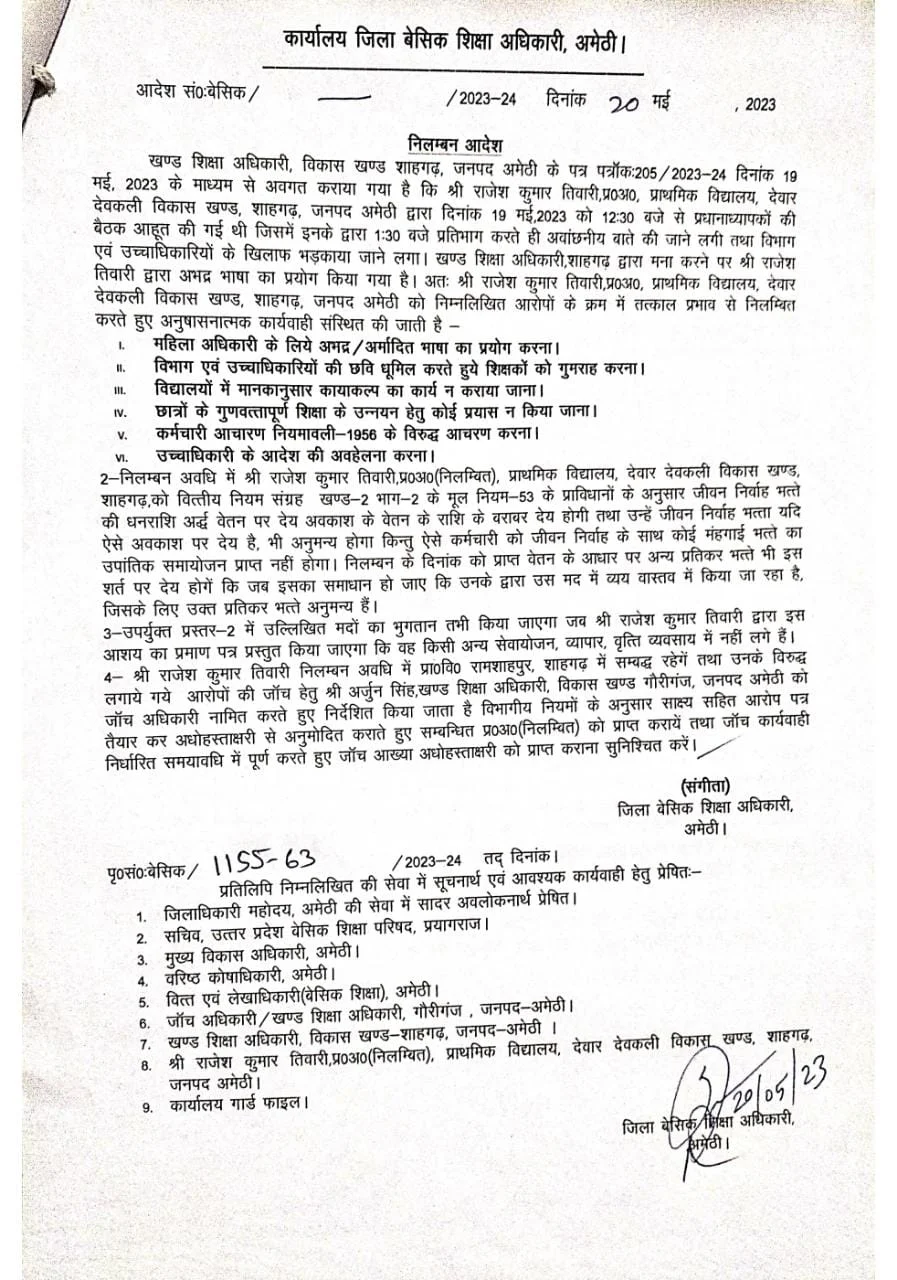 कार्यालय जिला बेसिक शिक्षा अधिकारी, अमेठी।
आदेश सं0:बेसिक/ — /2023-24 दिनांक 20 मई , 2023
निलम्बन आदेश
खण्ड शिक्षा अधिकारी, विकास खण्ड शाहगढ़, जनपद अमेठी के पत्र पत्रॉक:205/2023-24 दिनांक 19
मई, 2023 के माध्यम से अवगत कराया गया है कि श्री राजेश कुमार तिवारी,प्र0अ0, प्राथमिक विद्यालय, देवार
देवकली विकास खण्ड, शाहगढ़, जनपद अमेठी द्वारा दिनांक 19 मई,2023 को 12:30 बजे से प्रधानाध्यापकों की
बैठक आहूत की गई थी जिसमें इनके द्वारा 1:30 बजे प्रतिभाग करते ही अवांछनीय बाते की जाने लगी तथा विभाग
एवं उच्चाधिकारियों के खिलाफ भड़काया जाने लगा। खण्ड शिक्षा अधिकारी,शाहगढ़ द्वारा मना करने पर श्री राजेश
तिवारी द्वारा अभद्र भाषा का प्रयोग किया गया है। अतः श्री राजेश कुमार तिवारी,प्र0अ0, प्राथमिक विद्यालय, देवार
देवकली विकास खण्ड, शाहगढ़, जनपद अमेठी को निम्नलिखित आरोपों के क्रम में तत्काल प्रभाव से निलम्बित
करते हुए अनुषासनात्मक कार्यवाही संस्थित की जाती है –
I. महिला अधिकारी के लिये अभद्र/अर्मादित भाषा का प्रयोग करना।
II. विभाग एवं उच्चाधिकारियों की छवि धूमिल करते हुये शिक्षकों को गुमराह करना।
III. विद्यालयों में मानकानुसार कायाकल्प का कार्य न कराया जाना।
IV. छात्रों के गुणवत्तापूर्ण शिक्षा के उन्नयन हेतु कोई प्रयास न किया जाना।
V. कर्मचारी आचारण नियमावली-1956 के विरुद्ध आचरण करना।
VI. उच्चाधिकारी के आदेश की अवहेलना करना।
2-निलम्बन अवधि में श्री राजेश कुमार तिवारी,प्र0अ0(निलम्बित), प्राथमिक विद्यालय, देवार देवकली विकास खण्ड,
शाहगढ़,को वित्तीय नियम संग्रह खण्ड-2 भाग-2 के मूल नियम-53 के प्राविधानों के अनुसार जीवन निर्वाह भत्ते
की धनराशि अर्द्ध वेतन पर देय अवकाश के वेतन के राशि के बराबर देय होगी तथा उन्हें जीवन निर्वाह भत्ता यदि
ऐसे अवकाश पर देय है, भी अनुमन्य होगा किन्तु ऐसे कर्मचारी को जीवन निर्वाह के साथ कोई मंहगाई भत्ते का
उपांतिक समायोजन प्राप्त नहीं होगा। निलम्बन के दिनांक को प्राप्त वेतन के आधार पर अन्य प्रतिकर भत्ते भी इस
शर्त पर देय होगें कि जब इसका समाधान हो जाए कि उनके द्वारा उस मद में व्यय वास्तव में किया जा रहा है,
जिसके लिए उक्त प्रतिकर भत्ते अनुमन्य हैं।
3-उपर्युक्त प्रस्तर-2 में उल्लिखित मदों का भुगतान तभी किया जाएगा जब श्री राजेश कुमार तिवारी द्वारा इस
आशय का प्रमाण पत्र प्रस्तुत किया जाएगा कि वह किसी अन्य सेवायोजन, व्यापार, वृत्ति व्यवसाय में नहीं लगे हैं।
4- श्री राजेश कुमार तिवारी निलम्बन अवधि में प्रा0वि0 रामशाहपुर, शाहगढ़ में सम्बद्ध रहेगें तथा उनके विरुद्ध
लगाये गये आरोपों की जॉच हेतु श्री अर्जुन सिंह,खण्ड शिक्षा अधिकारी, विकास खण्ड गौरीगंज, जनपद अमेठी को
जॉच अधिकारी नामित करते हुए निर्देशित किया जाता है विभागीय नियमों के अनुसार साक्ष्य सहित आरोप पत्र
तैयार कर अधोहस्ताक्षरी से अनुमोदित कराते हुए सम्बन्धित प्र0अ0(निलम्बित) को प्राप्त करायें तथा जॉच कार्यवाही
निर्धारित समयावधि में पूर्ण करते हुए जॉच आख्या अधोहस्ताक्षरी को प्राप्त कराना सुनिश्चित करें।
(संगीता)
जिला बेसिक शिक्षा अधिकारी,
अमेठी।
पृ0सं0:बेसिक/ 1155-63 /2023-24 तद् दिनांक।
प्रतिलिपि निम्नलिखित की सेवा में सूचनार्थ एवं आवश्यक कार्यवाही हेतु प्रेषितः-
1. जिलाधिकारी महोदय, अमेठी की सेवा में सादर अवलोकनार्थ प्रेषित।
2. सचिव, उत्तर प्रदेश बेसिक शिक्षा परिषद, प्रयागराज।
3. मुख्य विकास अधिकारी, अमेठी।
4. वरिष्ठ कोषाधिकारी, अमेठी।
5. वित्त एवं लेखाधिकारी(बेसिक शिक्षा), अमेठी।
6. जॉच अधिकारी/खण्ड शिक्षा अधिकारी, गौरीगंज , जनपद-अमेठी।
7. खण्ड शिक्षा अधिकारी, विकास खण्ड-शाहगढ़, जनपद-अमेठी ।
8. श्री राजेश कुमार तिवारी,प्र0अ0(निलम्बित), प्राथमिक विद्यालय, देवार देवकली विकास खण्ड, शाहगढ़,
जनपद अमेठी।
9. कार्यालय गार्ड फाइल।
20/05/23
जिला बेसिक शिक्षा अधिकारी,
अमेठी।